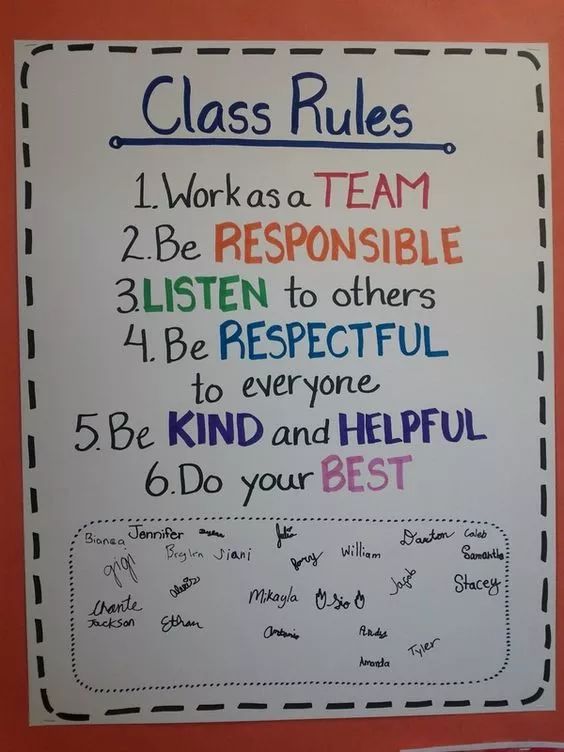 Class Rules
1. Work as a TEAM
2. Be RESPONSIBLE
3. LISTEN to others
4. Be RESPECTFUL
to everyone
5. Be KIND and HELPFUL
6. Do your BEST
Bianca Jennifer Julia Darton Caleb
gigi Braylen Siani William Samantha
Mikayla Sio Jacob Stacey
Chante
Jackson Ethan Antonio Andy
Amanda Tyler